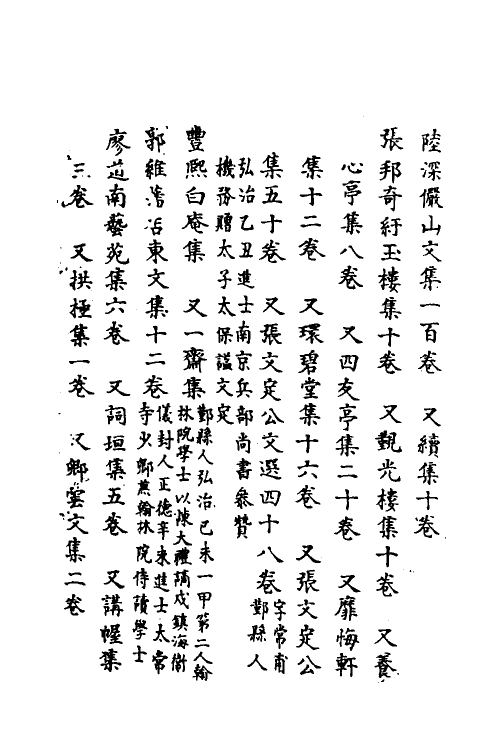 陸深儼山文集一百卷　又續集十卷
張邦奇紆玉樓集十卷　又觀光樓集十卷　又養
心亭集八卷　又四友亭集二十卷　又靡悔軒
集十二卷　又環碧堂集十六卷　又張文定公
集五十卷　又張文定公文選四十八卷字常甫
鄞縣人
弘治乙丑進士南京兵部尚書參贊
機務贈太子太保諡文定
豐熙白庵集　又一齋集鄞縣人弘治己未一甲第二人翰
林院學士以諫大禮謫戍鎮海衛
郭維藩杏東文集十二卷儀封人正德辛未進士太常
寺少卿兼翰林院侍讀學士
廖道南藝苑集六卷　又詞垣集五卷　又講幄集
三卷　又拱極集一卷　又鄉雲文集二卷